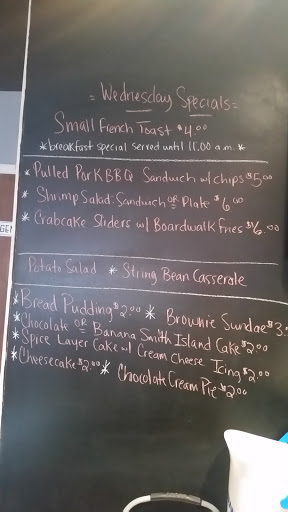 = Wednesday Specials =
Small French Toast $4.00
*breakfast special served until 11.00 a.m.*
* Pulled Pork BBQ Sandwich w/ chips $5.00
* Shrimp Salad: Sandwich OR Plate $6.00
* Crabcake Sliders w/ Boardwalk Fries $6.00
Potato Salad * String Bean Casserale
*Bread Pudding $2.00 * Brownie Sundae $3.
*Chocolate OR Banana Smith Island Cake $2.00
*Spice Layer Cake w/ Cream Cheese Icing $2.00
*Cheesecake $2.00 * Chocolate Cream Pie $2.00